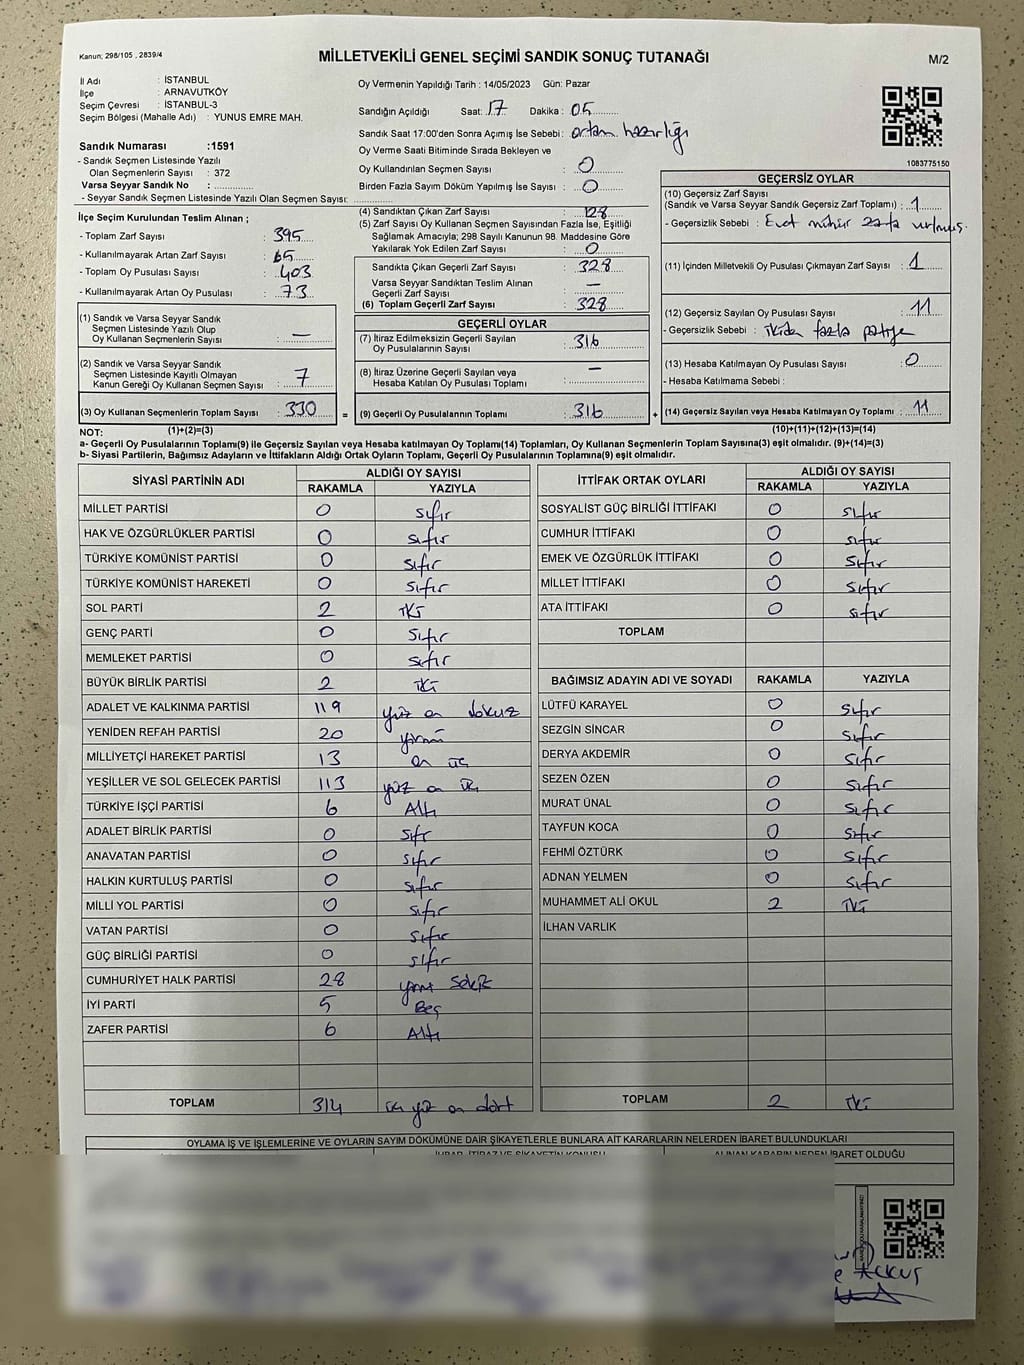 Kanun; 298/105 , 2839/4
MİLLETVEKİLİ GENEL SEÇİMİ SANDIK SONUÇ TUTANAĞI
M/2
İl Adı : İSTANBUL
İlçe : ARNAVUTKÖY
Seçim Çevresi : İSTANBUL-3
Seçim Bölgesi (Mahalle Adı) : YUNUS EMRE MAH.
Oy Vermenin Yapıldığı Tarih : 14/05/2023 Gün: Pazar
Sandığın Açıldığı Saat: 17 Dakika : 05
Sandık Saat 17:00'den Sonra Açımış İse Sebebi: ortam hazırlığı
Oy Verme Saati Bitiminde Sırada Bekleyen ve
Oy Kullandırılan Seçmen Sayısı : 0
Birden Fazla Sayım Döküm Yapılmış İse Sayısı : 0
1083775150
Sandık Numarası :1591
- Sandık Seçmen Listesinde Yazılı
Olan Seçmenlerin Sayısı : 372
Varsa Seyyar Sandık No :
- Seyyar Sandık Seçmen Listesinde Yazılı Olan Seçmen Sayısı:
İlçe Seçim Kurulundan Teslim Alınan ;
- Toplam Zarf Sayısı : 395
- Kullanılmayarak Artan Zarf Sayısı : 65
- Toplam Oy Pusulası Sayısı : 403
- Kullanılmayarak Artan Oy Pusulası : 73
(1) Sandık ve Varsa Seyyar Sandık
Seçmen Listesinde Yazılı Olup
Oy Kullanan Seçmenlerin Sayısı : —
(2) Sandık ve Varsa Seyyar Sandık
Seçmen Listesinde Kayıtlı Olmayan
Kanun Gereği Oy Kullanan Seçmen Sayısı : 7
(3) Oy Kullanan Seçmenlerin Toplam Sayısı : 330
(1)+(2)=(3)
(4) Sandıktan Çıkan Zarf Sayısı : 128
(5) Zarf Sayısı Oy Kullanan Seçmen Sayısından Fazla İse, Eşitliği
Sağlamak Amacıyla; 298 Sayılı Kanunun 98. Maddesine Göre
Yakılarak Yok Edilen Zarf Sayısı : 0
Sandıkta Çıkan Geçerli Zarf Sayısı : 328
Varsa Seyyar Sandıktan Teslim Alınan
Geçerli Zarf Sayısı : —
(6) Toplam Geçerli Zarf Sayısı : 328
GEÇERLİ OYLAR
(7) İtiraz Edilmeksizin Geçerli Sayılan
Oy Pusulalarının Sayısı : 316
(8) İtiraz Üzerine Geçerli Sayılan veya
Hesaba Katılan Oy Pusulası Toplamı : —
= (9) Geçerli Oy Pusulalarının Toplamı : 316
GEÇERSİZ OYLAR
(10) Geçersiz Zarf Sayısı
(Sandık ve Varsa Seyyar Sandık Geçersiz Zarf Toplamı) : 1
- Geçersizlik Sebebi : Evet mühür zarfa vurulmuş.
(11) İçinden Milletvekili Oy Pusulası Çıkmayan Zarf Sayısı : 1
(12) Geçersiz Sayılan Oy Pusulası Sayısı : 11
- Geçersizlik Sebebi : ikiden fazla partiye
(13) Hesaba Katılmayan Oy Pusulası Sayısı : 0
- Hesaba Katılmama Sebebi :
+ (14) Geçersiz Sayılan veya Hesaba Katılmayan Oy Toplamı : 11
(10)+(11)+(12)+(13)=(14)
NOT:
a- Geçerli Oy Pusulalarının Toplamı(9) ile Geçersiz Sayılan veya Hesaba katılmayan Oy Toplamı(14) Toplamları, Oy Kullanan Seçmenlerin Toplam Sayısına(3) eşit olmalıdır. (9)+(14)=(3)
b- Siyasi Partilerin, Bağımsız Adayların ve İttifakların Aldığı Ortak Oyların Toplamı, Geçerli Oy Pusulalarının Toplamına(9) eşit olmalıdır.
SİYASİ PARTİNİN ADI ALDIĞI OY SAYISI
RAKAMLA YAZIYLA
MİLLET PARTİSİ 0 sıfır
HAK VE ÖZGÜRLÜKLER PARTİSİ 0 sıfır
TÜRKİYE KOMÜNİST PARTİSİ 0 sıfır
TÜRKİYE KOMÜNİST HAREKETİ 0 sıfır
SOL PARTİ 2 iki
GENÇ PARTİ 0 sıfır
MEMLEKET PARTİSİ 0 sıfır
BÜYÜK BİRLİK PARTİSİ 2 iki
ADALET VE KALKINMA PARTİSİ 119 yüz on dokuz
YENİDEN REFAH PARTİSİ 20 yirmi
MİLLİYETÇİ HAREKET PARTİSİ 13 on üç
YEŞİLLER VE SOL GELECEK PARTİSİ 113 yüz on üç
TÜRKİYE İŞÇİ PARTİSİ 6 Altı
ADALET BİRLİK PARTİSİ 0 sıfr
ANAVATAN PARTİSİ 0 sıfır
HALKIN KURTULUŞ PARTİSİ 0 sıfır
MİLLİ YOL PARTİSİ 0 sıfır
VATAN PARTİSİ 0 sıfır
GÜÇ BİRLİĞİ PARTİSİ 0 sıfır
CUMHURİYET HALK PARTİSİ 28 yirmi sekiz
İYİ PARTİ 5 Beş
ZAFER PARTİSİ 6 Altı
TOPLAM 314 üç yüz on dört
İTTİFAK ORTAK OYLARI ALDIĞI OY SAYISI
RAKAMLA YAZIYLA
SOSYALİST GÜÇ BİRLİĞİ İTTİFAKI 0 sıfır
CUMHUR İTTİFAKI 0 sıfır
EMEK VE ÖZGÜRLÜK İTTİFAKI 0 sıfır
MİLLET İTTİFAKI 0 sıfır
ATA İTTİFAKI 0 sıfır
TOPLAM
BAĞIMSIZ ADAYIN ADI VE SOYADI RAKAMLA YAZIYLA
LÜTFÜ KARAYEL 0 sıfır
SEZGİN SİNCAR 0 sıfır
DERYA AKDEMİR 0 sıfır
SEZEN ÖZEN 0 sıfır
MURAT ÜNAL 0 sıfır
TAYFUN KOCA 0 sıfır
FEHMİ ÖZTÜRK 0 sıfır
ADNAN YELMEN 0 sıfır
MUHAMMET ALİ OKUL 2 iki
İLHAN VARLIK
TOPLAM 2 iki
OYLAMA İŞ VE İŞLEMLERİNE VE OYLARIN SAYIM DÖKÜMÜNE DAİR ŞİKAYETLERLE BUNLARA AİT KARARLARIN NELERDEN İBARET BULUNDUKLARI
İHBAR, İTİRAZ VE ŞİKAYETİN KONUSU ALINAN KARARIN NEDEN İBARET OLDUĞU